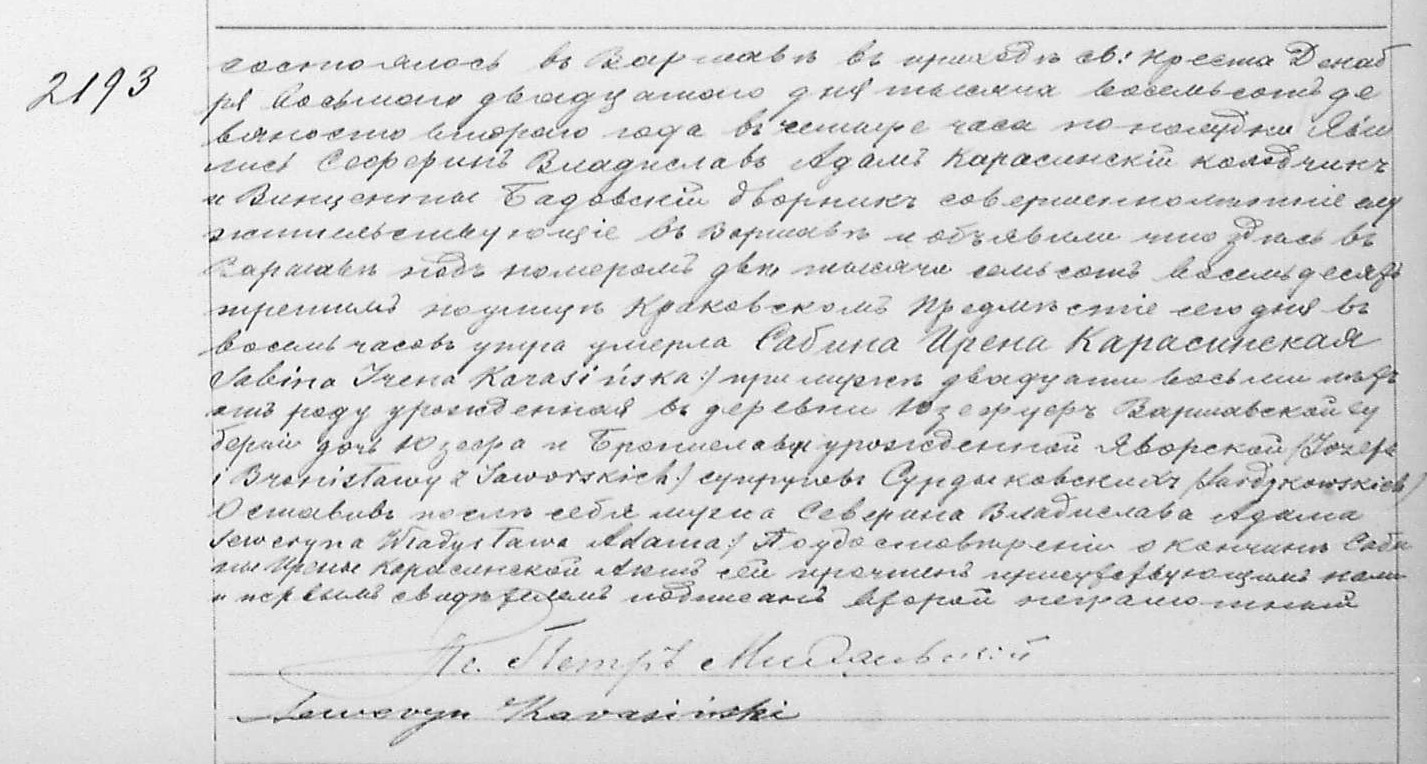 2193
состоялось въ Варшавѣ въ приходѣ св: Креста Декаб
ря восьмого двадцатого дня тысяча восемьсотъ де
вяносто второго года въ четыре часа по полудни Яви
лись Сеферинъ Владиславъ Адамъ Карасинскій колодчикъ
и Винценты Бадовскій дворникъ совершеннолѣтніе
жительствующіе въ Варшавѣ и объявили что здѣсь въ
Варшавѣ подъ номеромъ двѣ тысячи семьсотъ восемьдесятъ
третимъ по улицѣ Краковскомъ Предмѣстіе сегодня въ
восемь часовъ утра умерла Сабина Ирена Карасинская
Sabina Irena Karasińska:/ при мужѣ двадцати восьми лѣтъ
отъ роду урожденная въ деревни Юзефуерѣ Варшавской гу
берніи дочь Юзефа и Брониславы урожденной Яворской /Józefa
i Bronisławy z Jaworskich:/ супруговъ Сурдыковскихъ /Surdykowskich/
Оставивъ послѣ себя мужа Северина Владислава Адама
Seweryna Władysława Adama:/ По удостовѣреніи о кончинѣ Саби
ны Ирены Карасинской Актъ сей прочтенъ присутствующимъ нами
и первымъ свидѣтелемъ подписанъ второй неграмотный
Кс. Петръ
Seweryn Karasiński